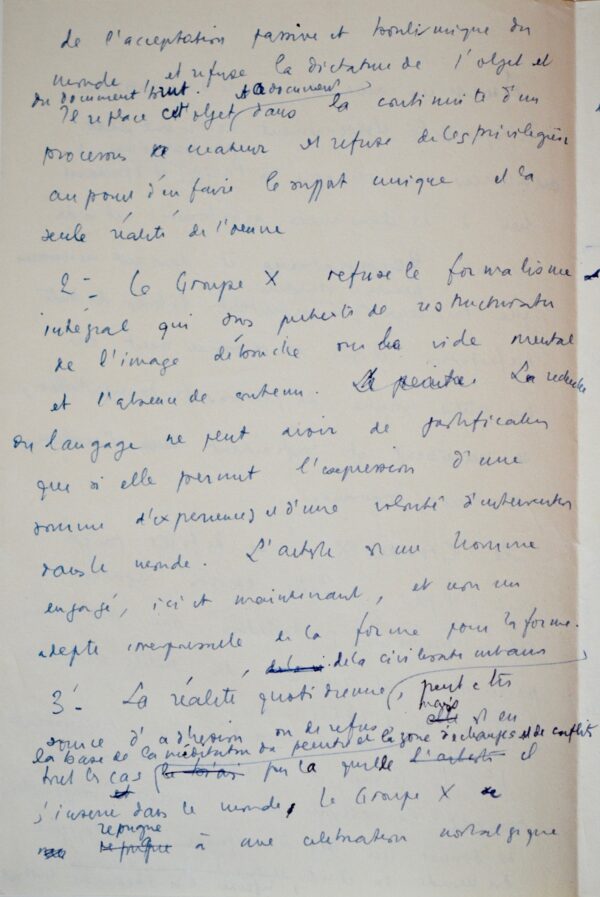 de l'acceptation passive et boulimique du
monde et refuse la dictature de l'objet et
du document brut. et ce document
Il replace cet objet dans la continuité d'un
processus créateur et refuse de les privilégier
au point d'en faire le support unique et la
seule réalité de l'oeuvre
2 - Le Groupe X refuse le formalisme
intégral qui sous prétexte de restructuration
de l'image débouche sur le vide mental
et l'absence de contenu. La recherche
du langage ne peut avoir de justification
que si elle permet l'expression d'une
somme d'expériences et d'une volonté d'intervention
dans le monde. L'artiste est un homme
engagé, ici et maintenant, et non un
adepte irresponsable de la forme pour la forme.
de la civilisation urbaine
3 - La réalité quotidienne, peut être
mais
source d'adhésion ou de refus est en
la base de la méditation du peintre et la zone d'échanges et de conflits
tout les cas par laquelle l'artiste il
s'insère dans le monde, Le Groupe X
répugne
répugne à une célébration nostalgique